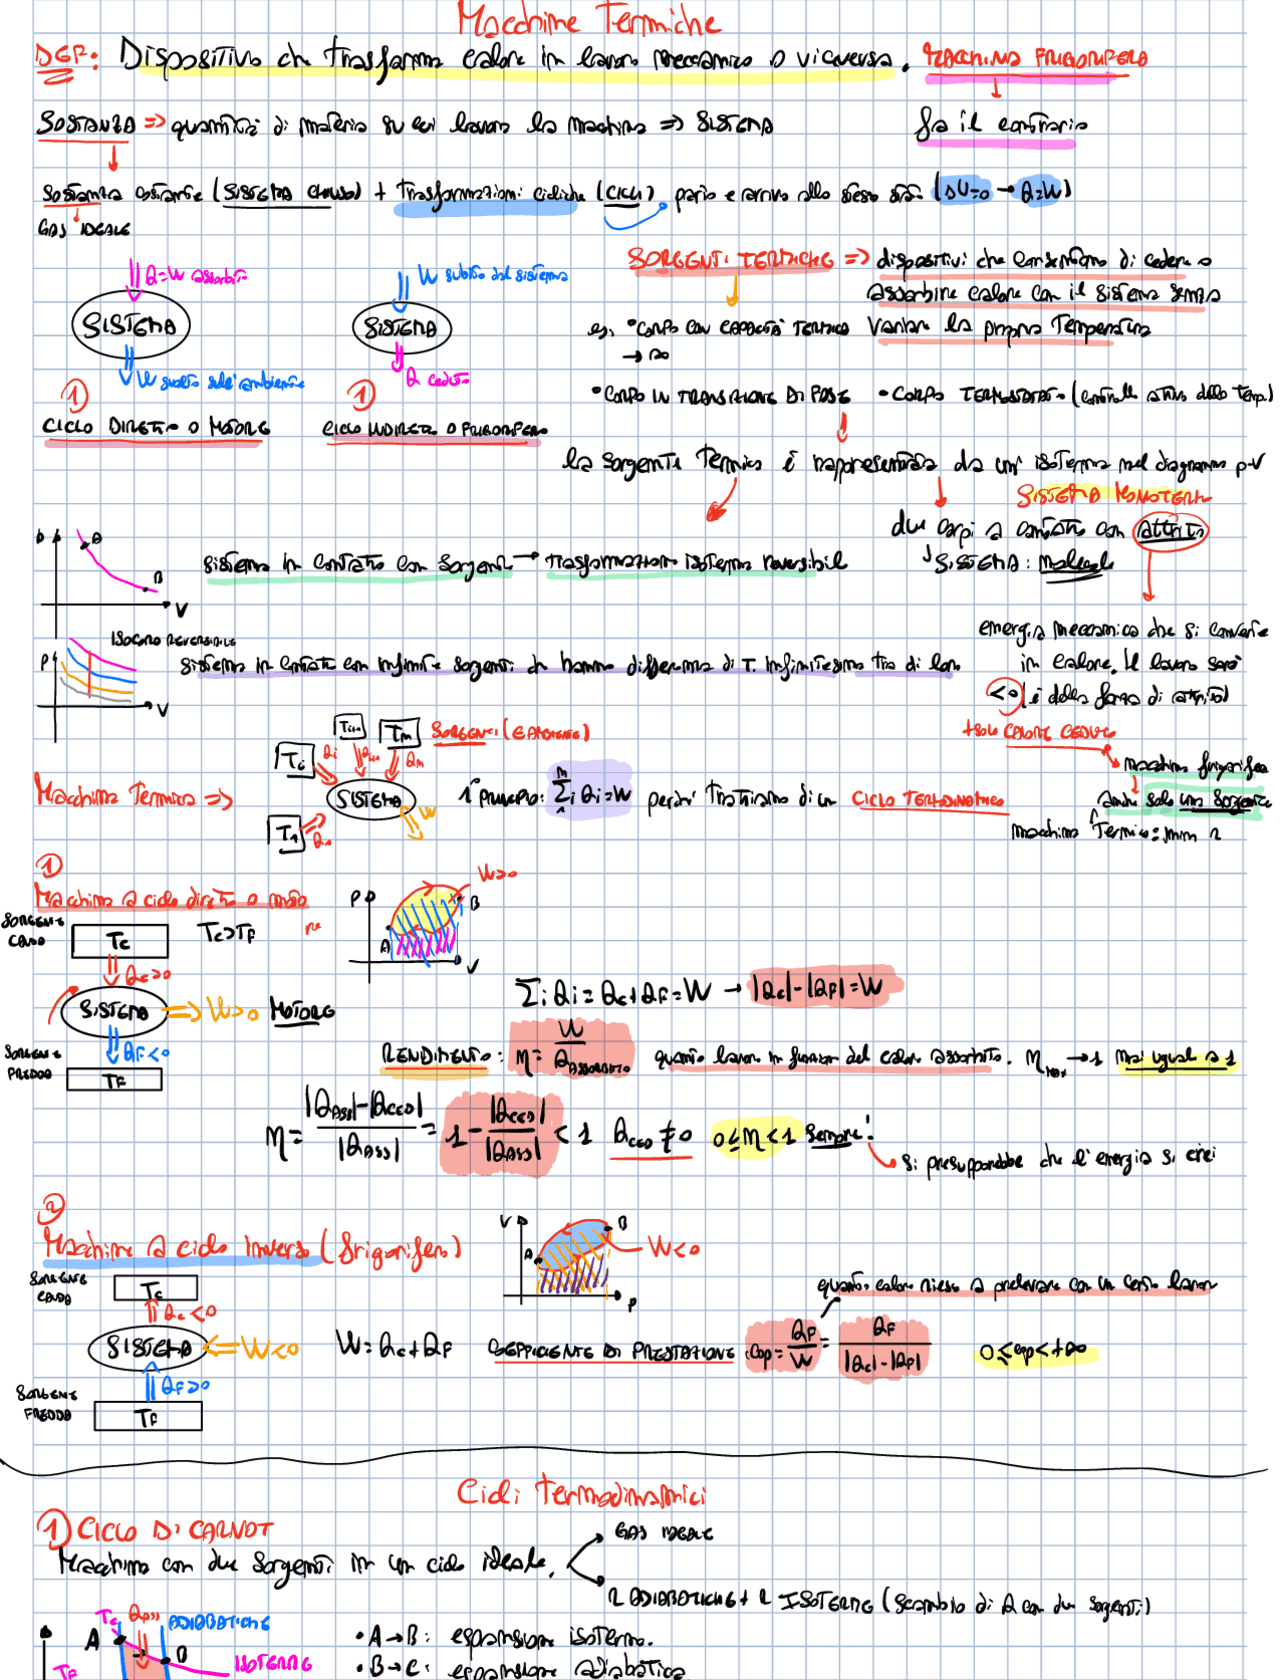 Macchine Termiche
DEF: Dispositivo che trasforma calore in lavoro meccanico o viceversa. MACCHINA FRIGORIFERA
SOSTANZA => quantità di materia su cui lavora la macchina => SISTEMA
fa il contrario
sostanza costante (SISTEMA CHIUSO) + trasformazioni cicliche (CICLI) parto e arrivo allo stesso stato (ΔU=0 → Q=W)
GAS IDEALE
Q=W assorbito
SISTEMA
W svolto sull'ambiente
1
CICLO DIRETTO O MOTORE
W subito dal sistema
SISTEMA
Q ceduto
1
CICLO INDIRETTO O FRIGORIFERO
SORGENTI TERMICHE => dispositivi che consentono di cedere o
assorbire calore con il sistema senza
variare la propria temperatura
es. •CORPO CON CAPACITÀ TERMICA
→ ∞
•CORPO IN TRANSIZIONE DI FASE •CORPO TERMOSTATATO (controllo attivo della temp.)
la sorgente termica è rappresentata da un' isoterma nel diagramma p-V
SISTEMA MONOTERMO
due corpi a contatto con attrito
SISTEMA: molecole
P
A
B
V
sistema in contatto con sorgente → trasformazioni isoterma reversibil
energia meccanica che si converte
in calore. Il lavoro sarà
<0 (è della forza di attrito)
+solo CALORE CEDUTO
macchina frigorifera
anche solo una sorgente
macchina termica: min 2
ISOCORA REVERSIBILE
P
V
sistema in contatto con infinite sorgenti che hanno differenza di T. infinitesima tra di loro
Ti Ti+1 Tn SORGENTI (E AMBIENTE)
Qi Qi+1 Qn
Macchina Termica =>
SISTEMA
W
T1
Q1
1° principio: Σi Qi=W perché trattiamo di un CICLO TERMODINAMICO
1
Macchina a ciclo diretto o moto
re
SORGENTE
CALDA
Tc
Tc>TF
Qc>0
SISTEMA => W>0 MOTORE
QF<0
SORGENTE
FREDDA
TF
P
W>0
A
B
V
Σi Qi = Qc+QF = W → |Qc|-|QF|=W
RENDIMENTO: η= W/QASSORBITO quanto lavoro in funzion del calor assorbito. ηMAX → 1 mai ugual a 1
η= |QASS|-|QCED| / |QASS| = 1- |QCED|/|QASS| < 1 QCED ≠0 0≤η<1 sempre!
si presupporrebbe che l'energia si crei
2
Macchine a ciclo inverso (frigorifero)
SORGENTE
CALDA
Tc
Qc<0
SISTEMA <= W<0
QF>0
SORGENTE
FREDDA
TF
V
A
B
W<0
P
quanto calore riesco a prelevare con un certo lavoro
W=Qc+QF COEFFICIENTE DI PRESTAZIONE: cop= QF/W = QF/|Qc|-|QF| 0≤cop<+∞
Cicli termodinamici
1) CICLO DI CARNOT
GAS IDEALE
Macchina con due sorgenti in un ciclo ideale.
2 ADIABATICHE + 2 ISOTERME (scambio di Q con due sorgenti)
Tc QASS ADIABATICHE
A
B
ISOTERME
TF
•A→B: espansione isoterma.
•B→C: espansione adiabatica